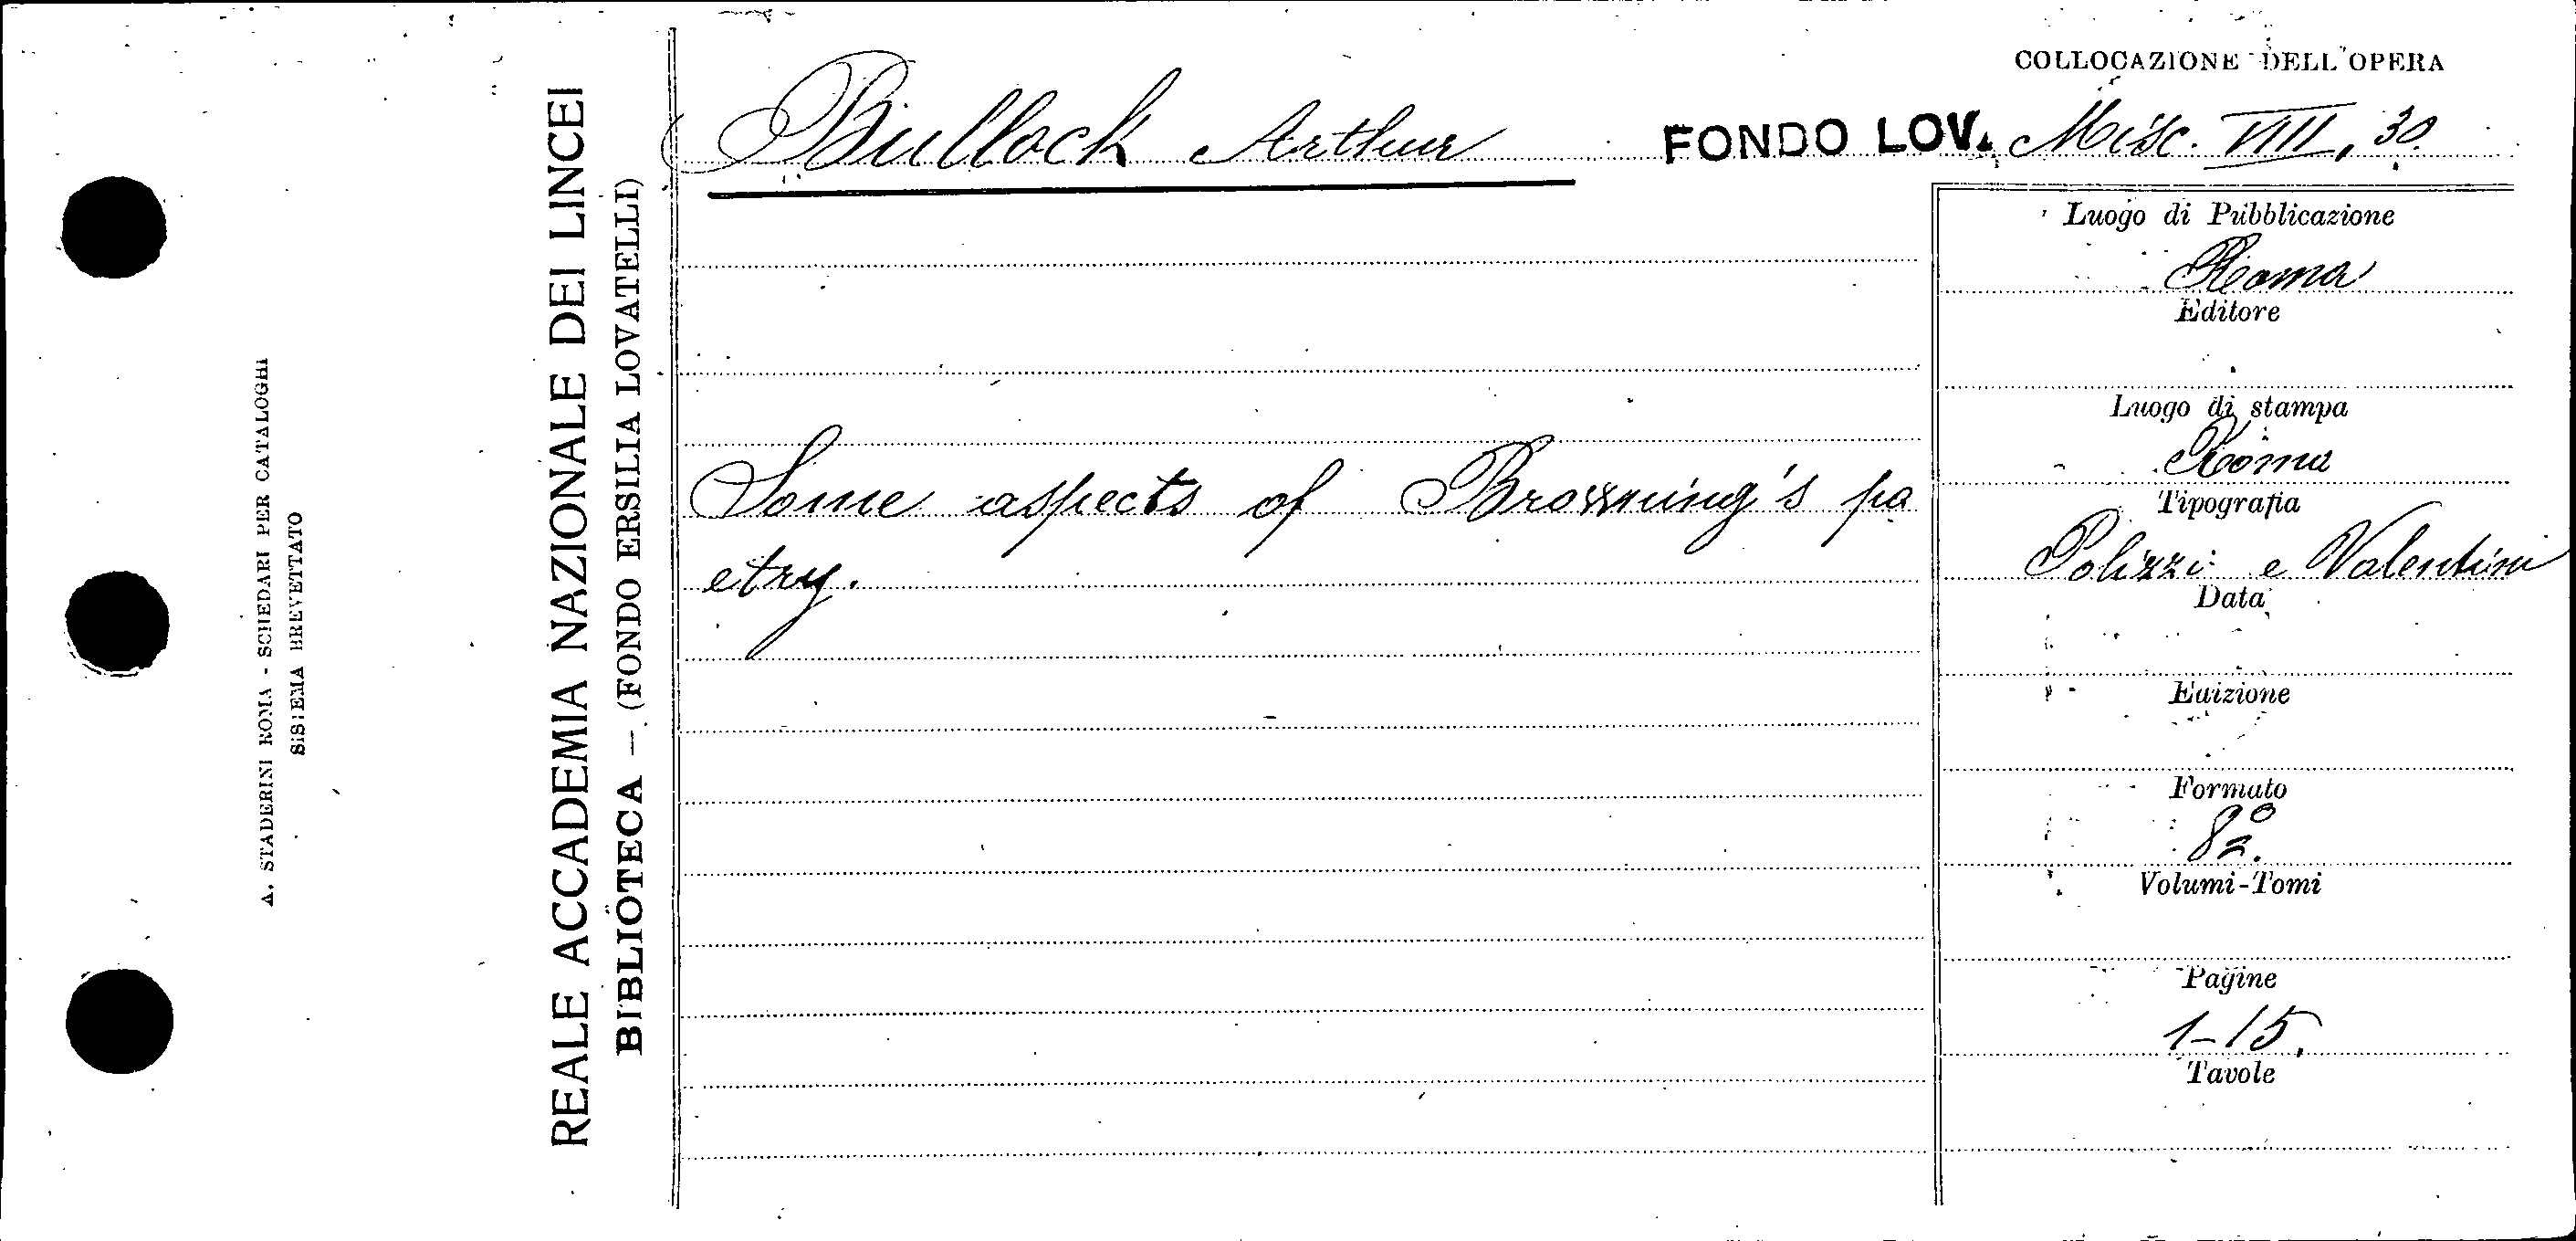 COLLOCAZIONE DELL'OPERA
Bullock Arthur FONDO LOV. Misc. VIII, 30.
Some aspects of Browning's po
etry.
Luogo di Pubblicazione
Roma
Editore
Luogo di stampa
Roma
Tipografia
Polizzi e Valentini
Data
Edizione
Formato
8º.
Volumi-Tomi
Pagine
1-15.
Tavole
REALE ACCADEMIA NAZIONALE DEI LINCEI
BIBLIOTECA — (FONDO ERSILIA LOVATELLI)
A. STADERINI ROMA - SCHEDARI PER CATALOGHI
SISTEMA BREVETTATO